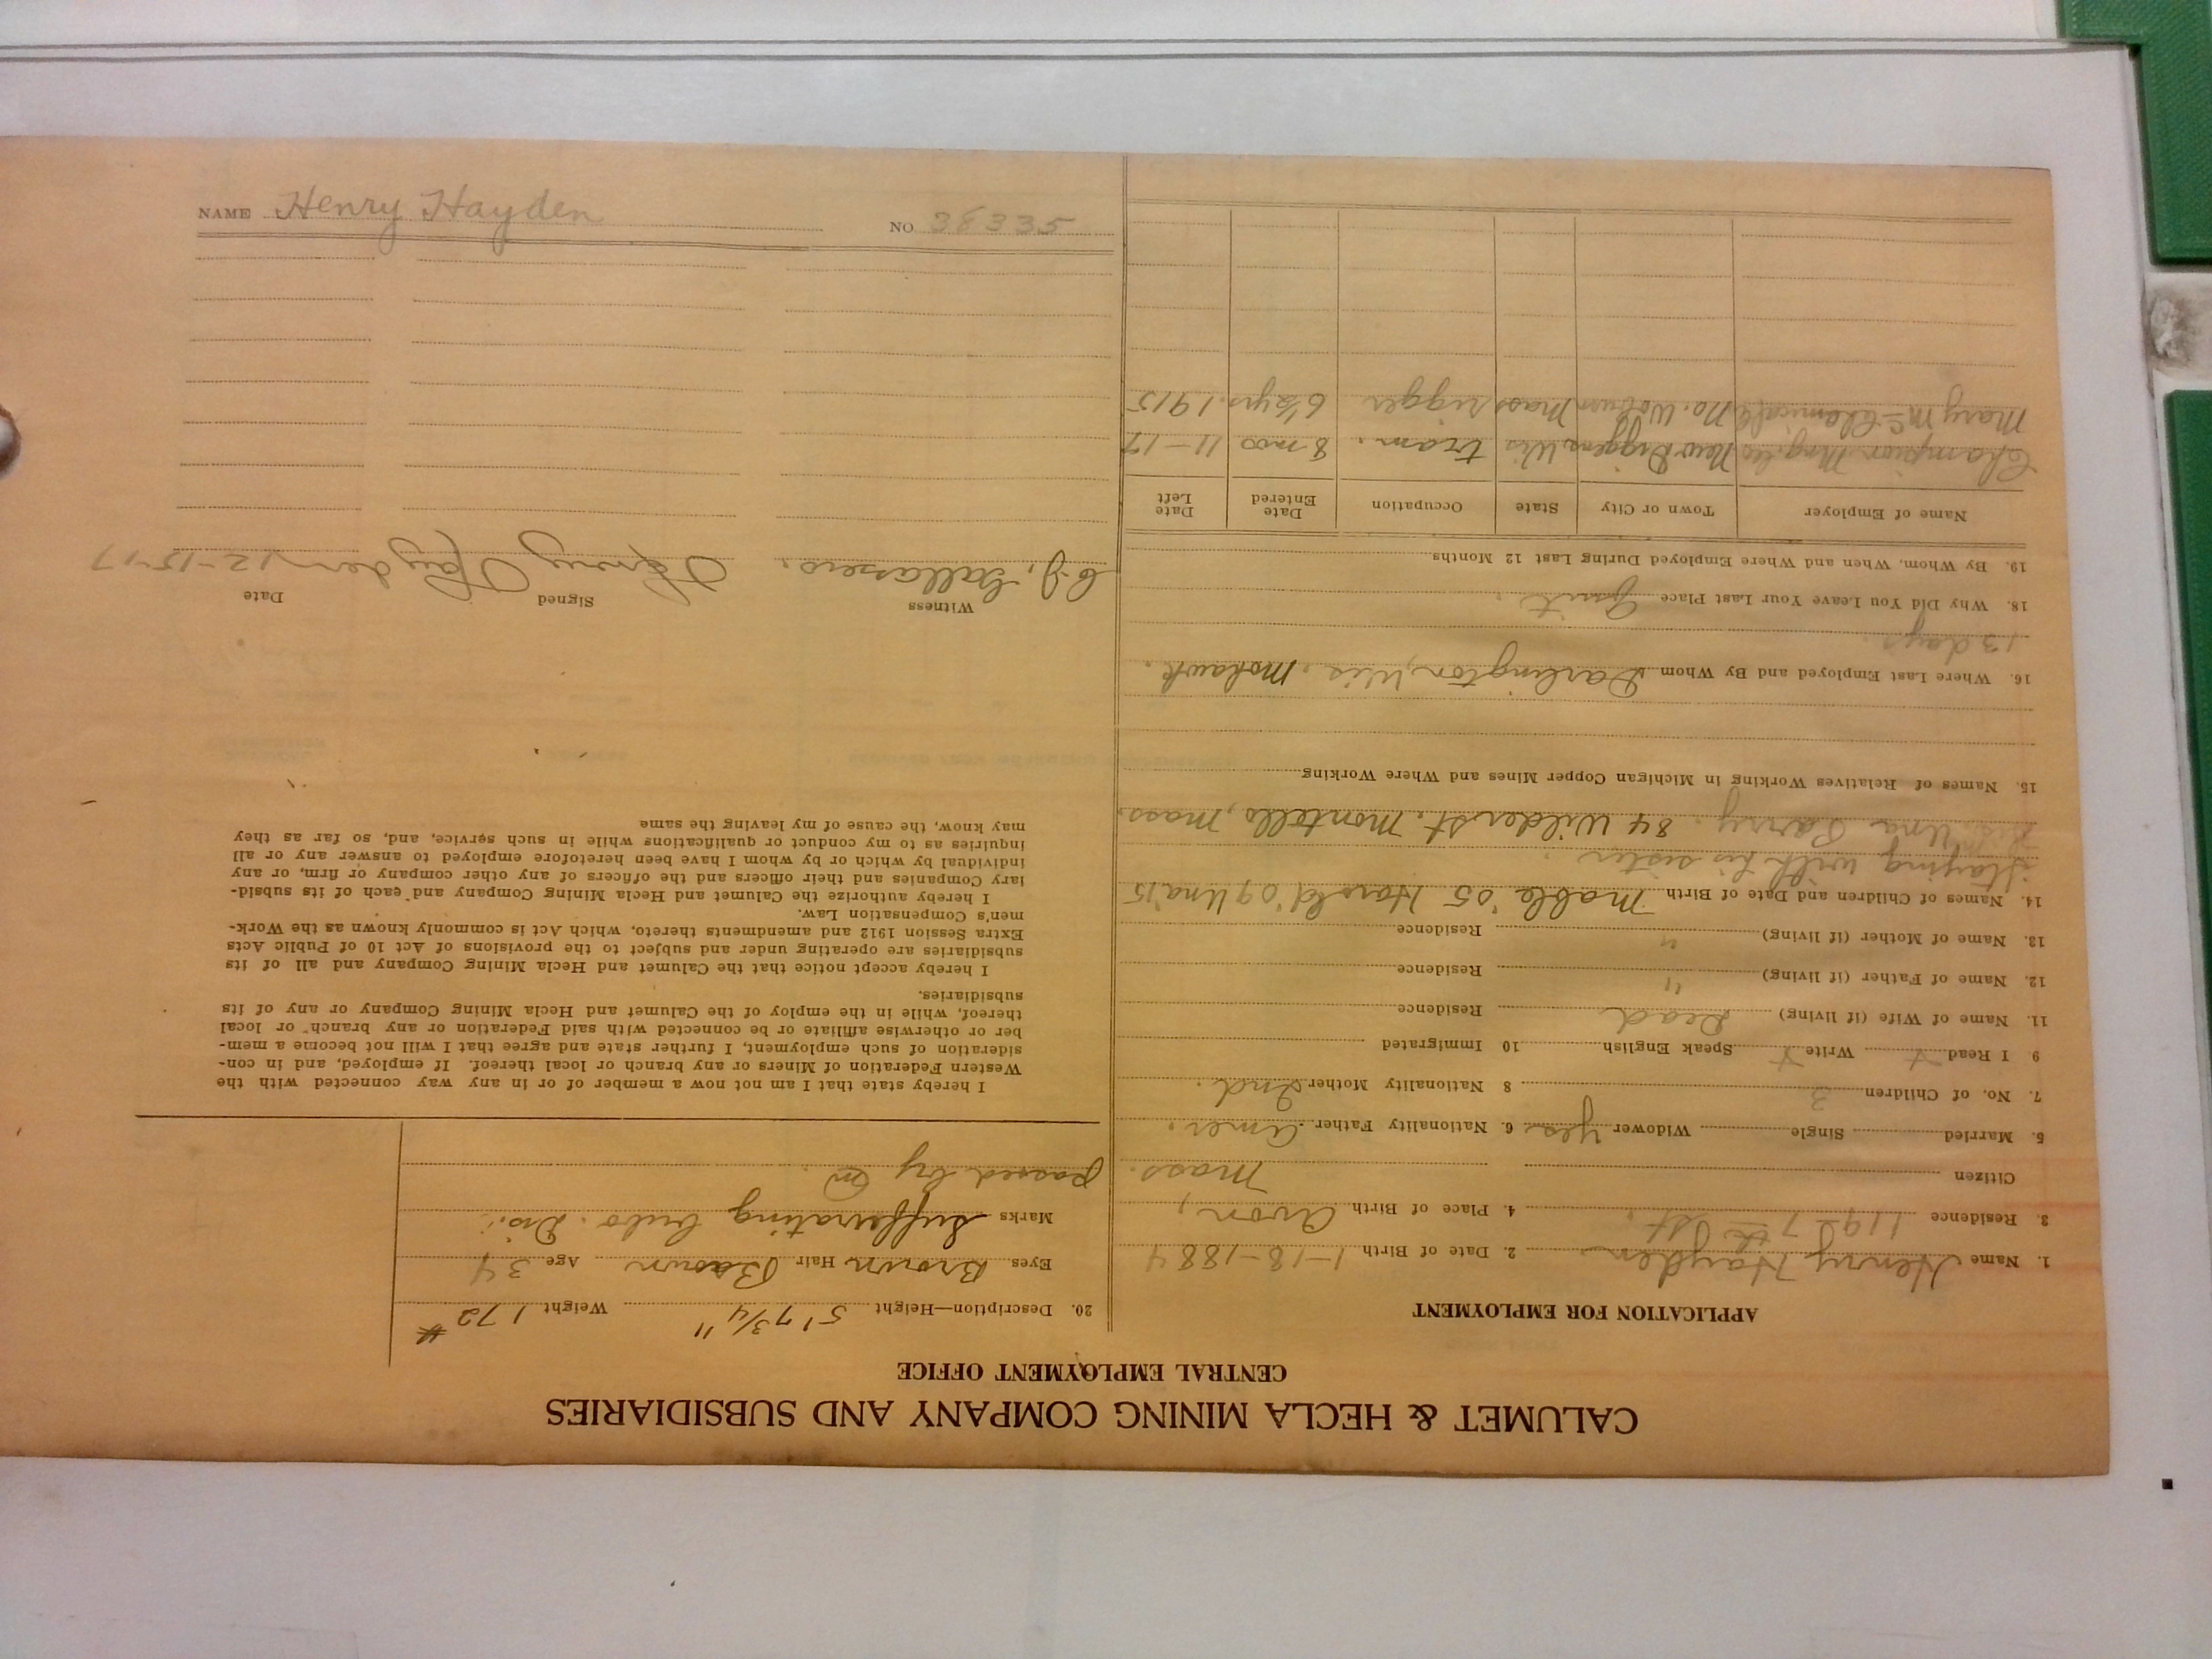 CALUMET & HECLA MINING COMPANY AND SUBSIDIARIES
CENTRAL EMPLOYMENT OFFICE
APPLICATION FOR EMPLOYMENT
1. Name Henry Hayden. 2. Date of Birth 1-18-1884
3. Residence 119 7th St. 4. Place of Birth Avon,
Citizen Mass.
5. Married Single Widower yes 6. Nationality Father Amer.
7. No. of Children 3 8 Nationality Mother Ind.
9 I Read Write Speak English 10 Immigrated
11. Name of Wife (if living) Dead Residence
12. Name of Father (if living) " Residence
13. Name of Mother (if living) " Residence
14. Names of Children and Date of Birth Mable '05 Harold '09 Una '15
Staying with his sister.
Una Parry. 84 Wilder St. Montello, Mass.
15. Names of Relatives Working in Michigan Copper Mines and Where Working
16. Where Last Employed and By Whom Darlington, Wis. Mohawk.
13 days.
18. Why Did You Leave Your Last Place Quit.
19. By Whom, When and Where Employed During Last 12 Months
Name of Employer Town or City State Occupation Date Entered Date Left
Champion Mng. Co New Diggens Wis tram. 8 mos 11-17
Mary Mc Chemical Co No. Woburn Mass rigger 6½ yrs. 1915
20. Description—Height 5' 7 3/4" Weight 172 #
Eyes Brown Hair Brown Age 34
Marks
passed by
I hereby state that I am not now a member of or in any way connected with the
Western Federation of Miners or any branch or local thereof. If employed, and in con-
sideration of such employment, I further state and agree that I will not become a mem-
ber or otherwise affiliate or be connected with said Federation or any branch or local
thereof, while in the employ of the Calumet and Hecla Mining Company or any of its
subsidiaries.
I hereby accept notice that the Calumet and Hecla Mining Company and all of its
subsidiaries are operating under and subject to the provisions of Act 10 of Public Acts
Extra Session 1912 and amendments thereto, which Act is commonly known as the Work-
men's Compensation Law.
I hereby authorize the Calumet and Hecla Mining Company and each of its subsid-
iary Companies and their officers and the officers of any other company or firm, or any
individual by which or by whom I have been heretofore employed to answer any or all
inquiries as to my conduct or qualifications while in such service, and, so far as they
may know, the cause of my leaving the same
Witness Signed Date
Henry Hayden 12-15-17
NAME Henry Hayden NO 38335